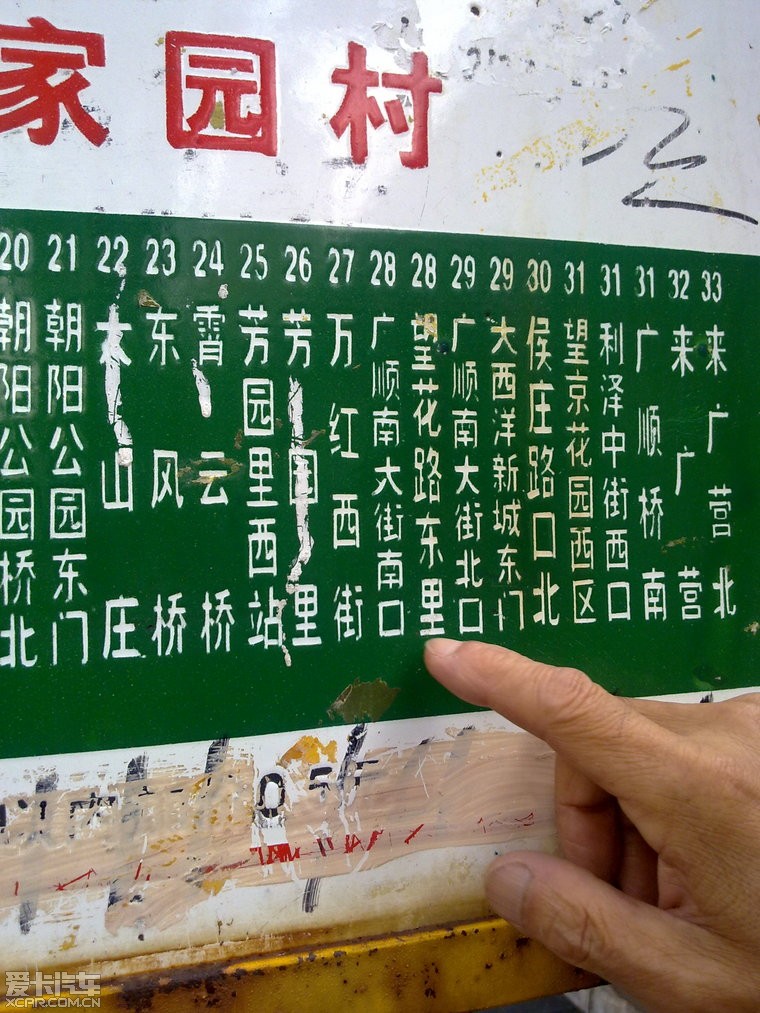 家园村
20 朝阳公园桥北
21 朝阳公园东门
22 木山庄
23 东风桥
24 霄云桥
25 芳园里西站
26 芳园里
27 万红西街
28 广顺南大街南口
28 望花路东里
29 广顺南大街北口
29 大西洋新城东门
30 侯庄路口北
31 望京花园西区
31 利泽中街西口
31 广顺桥南
32 来广营
33 来广营北
爱卡汽车
XCAR.COM.CN